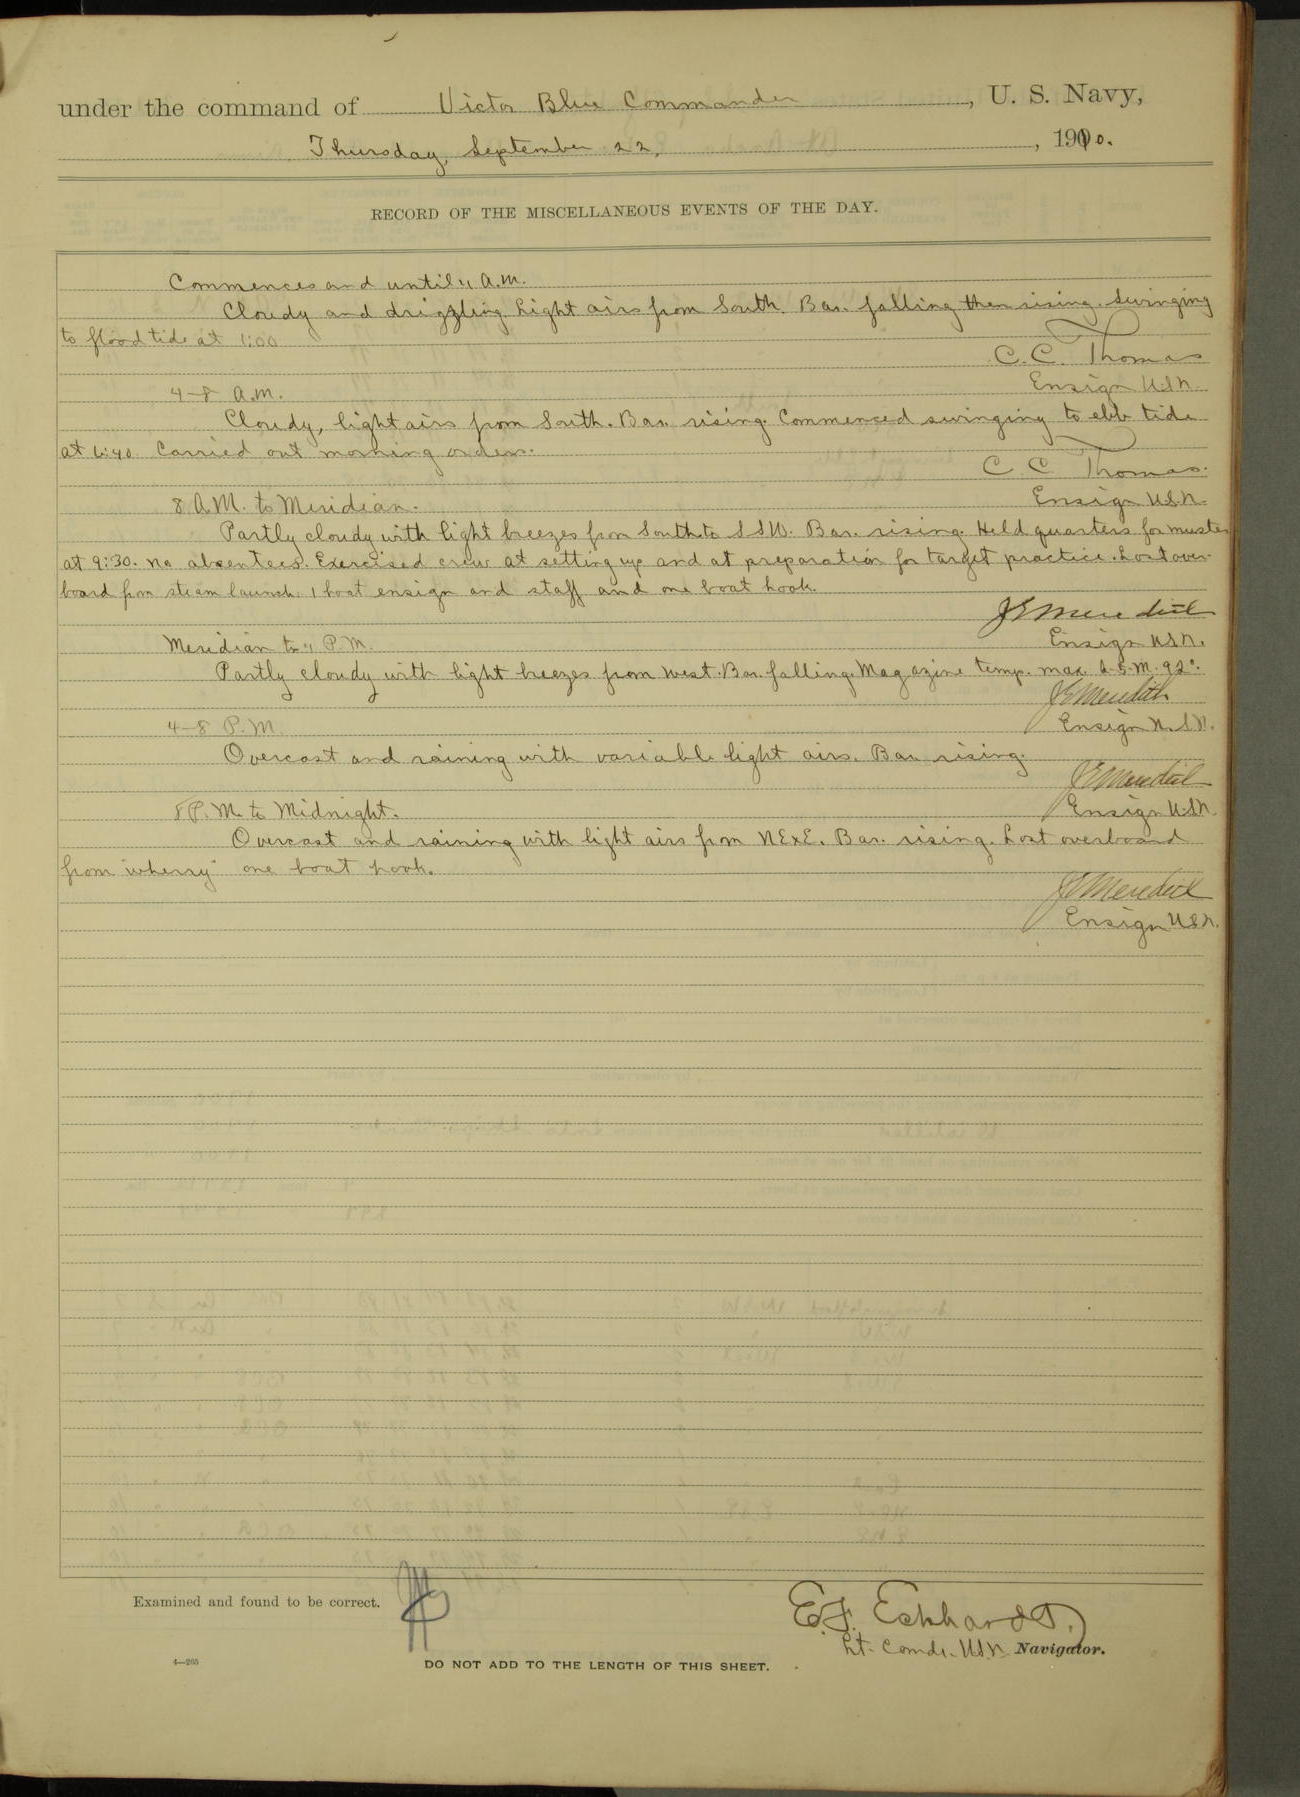 under the command of Victor Blue Commander, U. S. Navy,
Thursday, September 22, 1910.
RECORD OF THE MISCELLANEOUS EVENTS OF THE DAY.
Commences and until 4 A.M.
Cloudy and drizzling. Light airs from South. Bar. falling then rising. Swinging
to flood tide at 1:00
C. C. Thomas
4-8 A.M.
Ensign U.S.N.
Cloudy, light airs from South. Bar. rising. Commenced swinging to ebb tide
at 6:40. Carried out morning orders.
C. C. Thomas.
8 A.M. to Meridian.
Ensign U.S.N.
Partly cloudy with light breezes from South to SSW. Bar. rising. Held quarters for muster
at 9:30. No absentees. Exercised crew at setting up and at preparation for target practice. Lost over-
board from steam launch 1 boat ensign and staff and one boat hook.
J E Meredith
Meridian to 4 P.M.
Ensign U.S.N.
Partly cloudy with light breezes from West. Bar. falling. Magazine temp. max. A.S.M. 92°.
J E Meredith
4-8 P.M.
Ensign U.S.N.
Overcast and raining with variable light airs. Bar. rising.
J E Meredith
8 P.M. to Midnight.
Ensign U.S.N.
Overcast and raining with light airs from NExE. Bar. rising. Lost overboard
from "wherry" one boat hook.
J E Meredith
Ensign U.S.N.
Examined and found to be correct.
E. F. Eckhardt.
Lt. Comdr. U.S.N. Navigator.
4—265
DO NOT ADD TO THE LENGTH OF THIS SHEET.